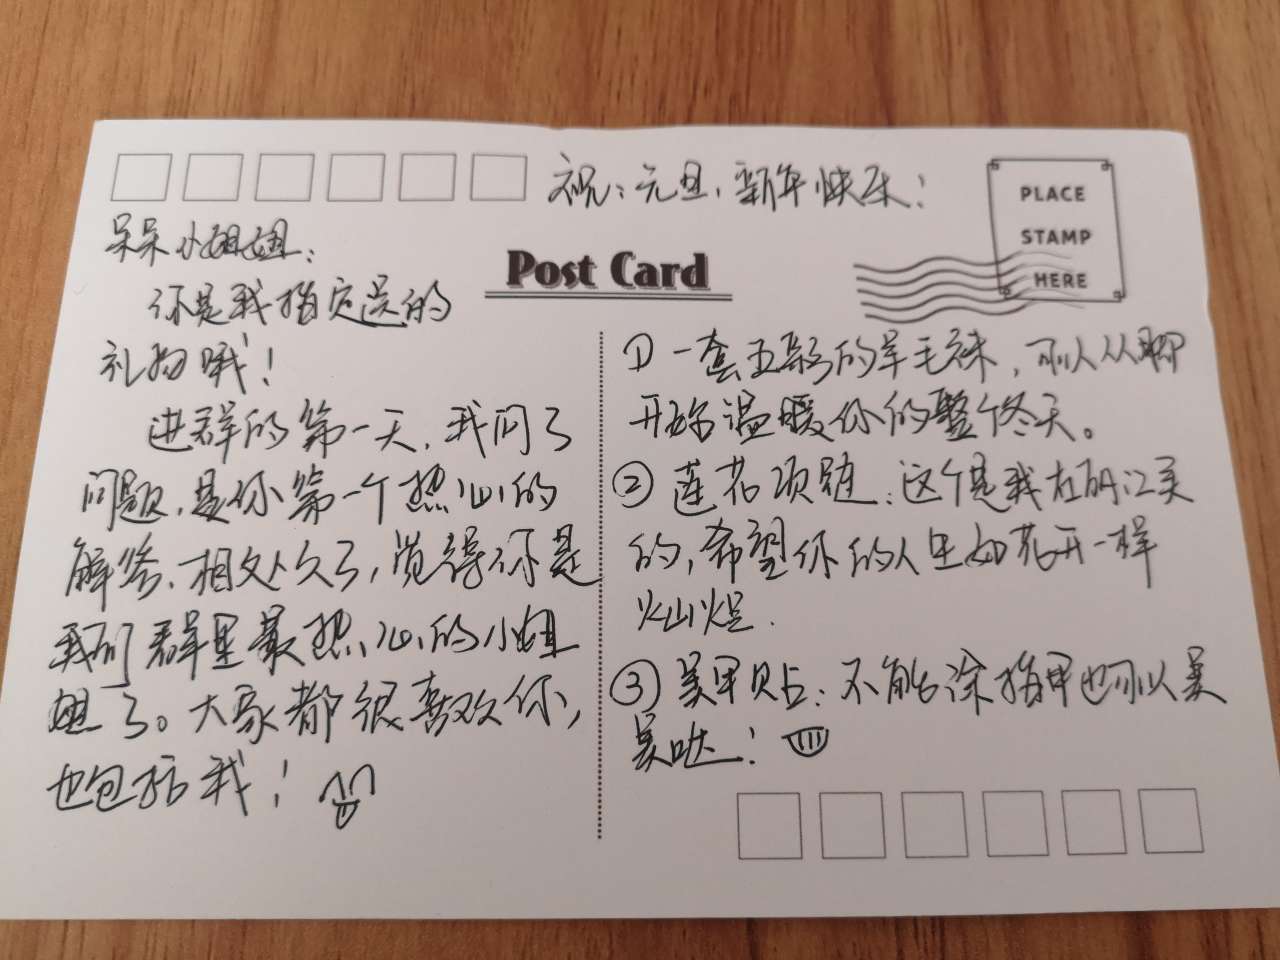 祝：元旦、新年快乐！
PLACE
STAMP
HERE
Post Card
呆呆小姐姐：
你是我指定送的
礼物哦！
进群的第一天，我问了
问题，是你第一个热心的
解答，相处久了，觉得你是
我们群里最热心的小姐
姐了。大家都很喜欢你，
也包括我！
①一套五条的羊毛袜，可以从脚
开始温暖你的整个冬天。
②莲花项链：这个是我在丽江买
的，希望你的人生如花开一样
灿烂.
③美甲贴：不能涂指甲也可以美
美哒！